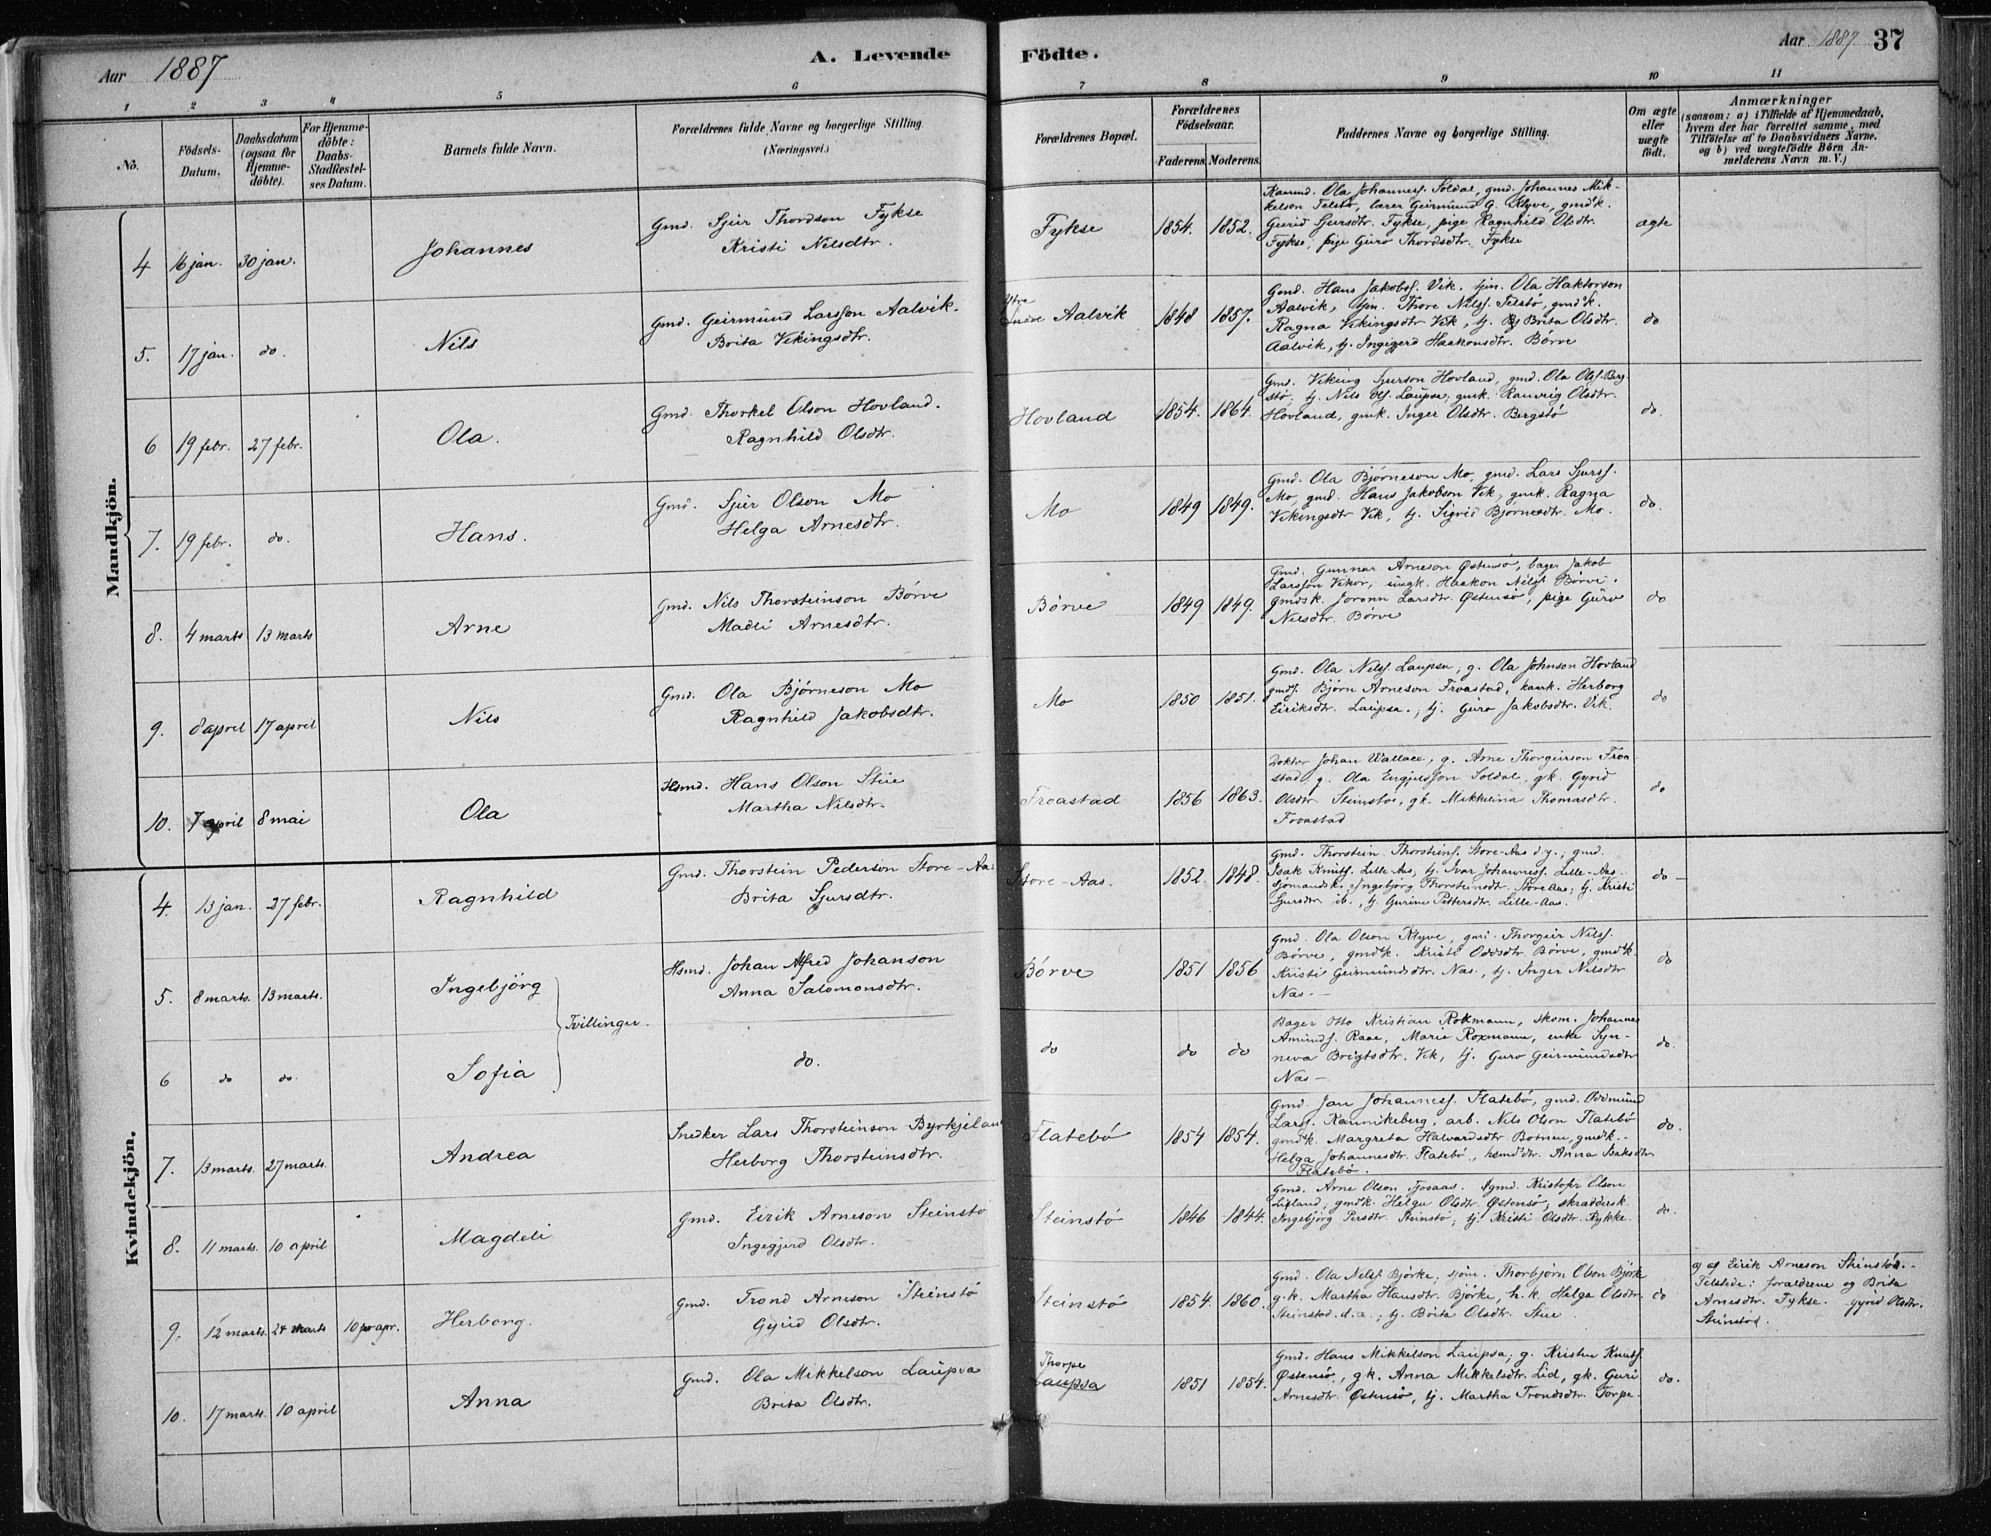 Aar 1887
A. Levende Födte.
Aar 1887 37
1 2 3 4 5 6 7 8 9 10 11
No.
Födsels-Datum.
Daabsdatum (ogsaa for Hjemme-döbte).
For Hjemme-döbte: Daabs-Stadfæstel-ses Datum.
Barnets fulde Navn.
Forældrenes fulde Navne og borgerlige Stilling.
(Næringsvei.)
Forældrenes Bopæl.
Forældrenes Födselsaar.
Faderens. Moderens.
Faddernes Navne og borgerlige Stilling.
Om ægte eller uægte födt.
Anmærkninger
(saasom: a) i Tilfælde af Hjemmedaab,
hvem der har forrettet samme, med
Tilföielse af to Daabsvidners Navne.
og b) ved uægtefödte Börn An-
melderens Navn m. V.)
Mandkjön.
4 16 jan. 30 jan. Johannes
Gmd. Sjur Thordson Fykse
Kristi Nilsdtr.
Fykse 1854. 1852.
Kaarmd. Ola Johanness. Soldal, gmd. Johannes Mik-
kelson Telstø, lærer Geirmund G. Klyve, gmdk.
Gurid Sjursdtr. Fykse, pige Ragnhild Olsdtr.
Fykse, pige Guro Thordsdtr. Fykse
ægte
5. 17 jan. do. Nils
Gmd. Geirmund Larsson Aalvik.
Brita Vikingsdtr.
Ytre Aalvik 1848 1857.
Gmd. Hans Jakobs. Vik, tjn. Ola Haktorson
Aalvik, tjn. Thore Nilss. Telstø, gmdk.
Ragna Vikingsdtr Vik, tj. Brita Olsdtr.
Aalvik, tj. Ingigjerd Haakonsdtr. Børve
do
6 19 febr. 27 febr. Ola.
Gmd. Thorkel Olson Hovland.
Ragnhild Olsdtr.
Hovland 1854. 1864.
Gmd. Viking Sjurson Hovland, gmd. Ola Ols. Berg-
stø, tj. Nils Ols. Laupsa, gmk. Ranveig Olsdtr.
Hovland, gmk. Inger Olsdtr. Bergstø
do.
7. 19 febr. do. Hans.
Gmd. Sjur Olson Mo
Helga Arnesdtr.
Mo 1849 1849.
Gmd. Ola Bjørneson Mo, gmd. Lars Sjurss.
Mo, gmd. Hans Jakobson Vik, gmk. Ragna
Vikingsdtr Vik, tj. Sigrid Bjørnesdtr. Mo.
do.
8. 4 marts 13 marts Arne
Gmd. Nils Thorsteinson Børve
Madli Arnesdtr.
Børve 1849. 1849.
Gmd. Gunnar Arneson Østensø, bager Jakob
Larsson Vikør, ungk. Haakon Nilss. Børve.
gmdsk. Joronn Larsdtr. Østensø, pige Guro
Nilsdtr. Børve
do
9. 8 april 17 april Nils
Gmd. Ola Bjørneson Mo
Ragnhild Jakobsdtr.
Mo 1850 1851.
Gmd. Ola Nilss. Laupsa, g. Ola Johnson Hovland
gmds. Bjørn Arneson Froastad, kaark. Herborg
Eiriksdtr. Laupsa., tj. Guro Jakobsdtr. Vik.
do
10. 7 april 8 mai Ola
Hsmd. Hans Olson Stue
Martha Nilsdtr.
Froastad 1856 1863.
Doktor Johan Wallace, g. Arne Thorgeirson Froa-
stad, g. Ola Soldal, gk. Gyrid
Olsdtr Steinstø, gk. Mikkelina Thomasdtr.
Froastad
do
Kvindekjön.
4. 13 jan. 27 febr. Ragnhild
Gmd. Thorstein Pederson Store-Aas
Brita Sjursdtr.
Store-Aas. 1852. 1848.
Gmd. Thorstein Thorsteins. Store-Aas d.y.; gmd.
Isak Knuts. Lille Aas, tj. Ivar Johanness. Lille-Aas.
sjømandsk. Ingebjørg Thorsteinsdt. Store Aas; tj. Kristi
Sjursdtr ib., tj. Gurine Pettersdtr. Lille-Aas.
do
5. 8 marts. 13 marts. Ingebjörg
Tvillinger.
Hsmd. Johan Alfred Johanson
Anna Salomonsdtr.
Børve 1851 1856
Gmd. Ola Olson Klyve, gmd. Thorgeir Nilss.
Børve, gmdk. Kristi Oddsdtr Børve, gmdk.
Kristi Geirmundsdtr. Nas., tj. Inger Nilsdtr
Nas.
do
6 do do. Sofia
do.
do do do
Bager Otto Kristian Rokmann, skom. Johannes
Amunds. Raae, Marie Roxmann, enke Syn-
neva Brigtsdtr. Vik, tj. Guro Geirmundsdtr
Nas
do.
7. 13 marts. 27 marts. Andrea
Snedker Lars Thorsteinson Byrkjeland
Herborg Thorsteinsdtr.
Flatebö 1854 1854.
Gmd. Jan Johanness. Flatebö, gmd. Oddmund
Larss. Kannikeberg, arb. Nils Olson Flatebö
gmdk. Margreta Halvardsdtr Botnen, gmdk.
Helga Johannesdtr. Flatebö, Anna
Flatebö.
do.
8. 11 marts. 10 april Magdeli
Gmd. Eirik Arneson Steinstö
Ingegjerd Olsdtr.
Steinstö 1846 1844.
Gmd. Arne Olson Tjosaas. gmd. Kristofer Olson
gmdk. Helga Olsdtr. Østensö, skrædderk.
Ingebjörg Persdtr. Steinstö, tj. Kristi Olsdtr. Rykke.
do.
9. 12 marts. 24 marts 10 apr. Herborg.
Gmd. Trond Arneson Steinstö
Gyrid Olsdtr.
Steinstö 1854. 1860.
Gmd. Ola Nilss. Björke, sjöm. Thorbjörn Olson Björke
g.k. Martha Hansdtr. Björke, h.k. Helga Olsdtr.
Steinstød. d.æ.; tj. Brita Olsdtr. Stue
do
a) af Eirik Arneson Steinstö.
Tilstede: forældrene og Brita
Arnesdtr. Fykse. Gyrid Olsdtr.
Steinstød.
10. 17 marts. 10 april Anna
Gmd. Ola Mikkelson Laupsa
Brita Olsdtr.
Thorpe
Laupsa 1851 1854.
Gmd. Hans Mikkelson Laupsa; g. Kristen Knuts.
Østensö, gk. Anna Mikkelsdtr. Lid, gk. Guri
Arnesdtr. Østensö, tj. Martha Trondsdtr. Torpe.
do.